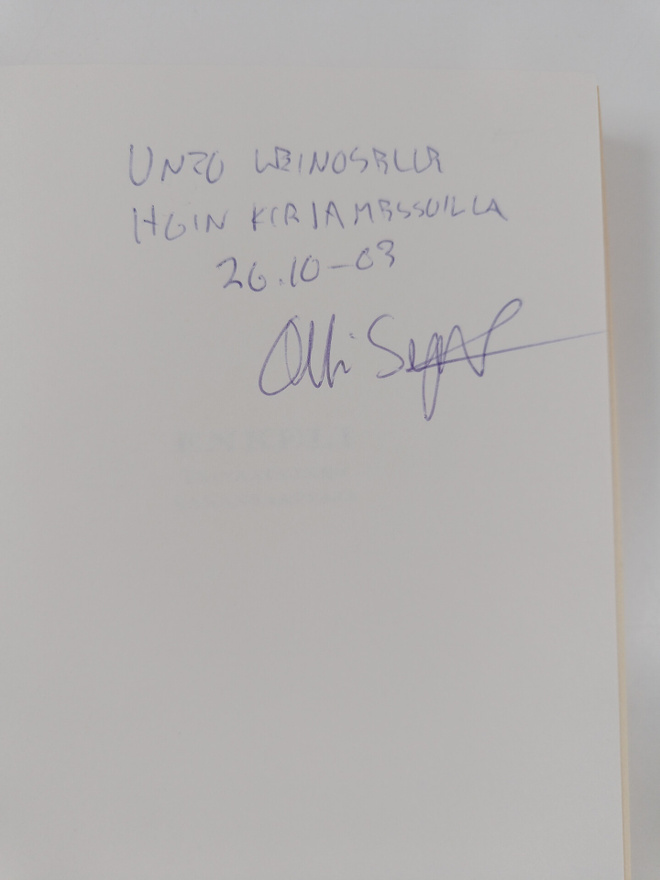 UNTO LEINOSELLE
HGIN KIRJAMESSUILLA
26.10-03
Olli